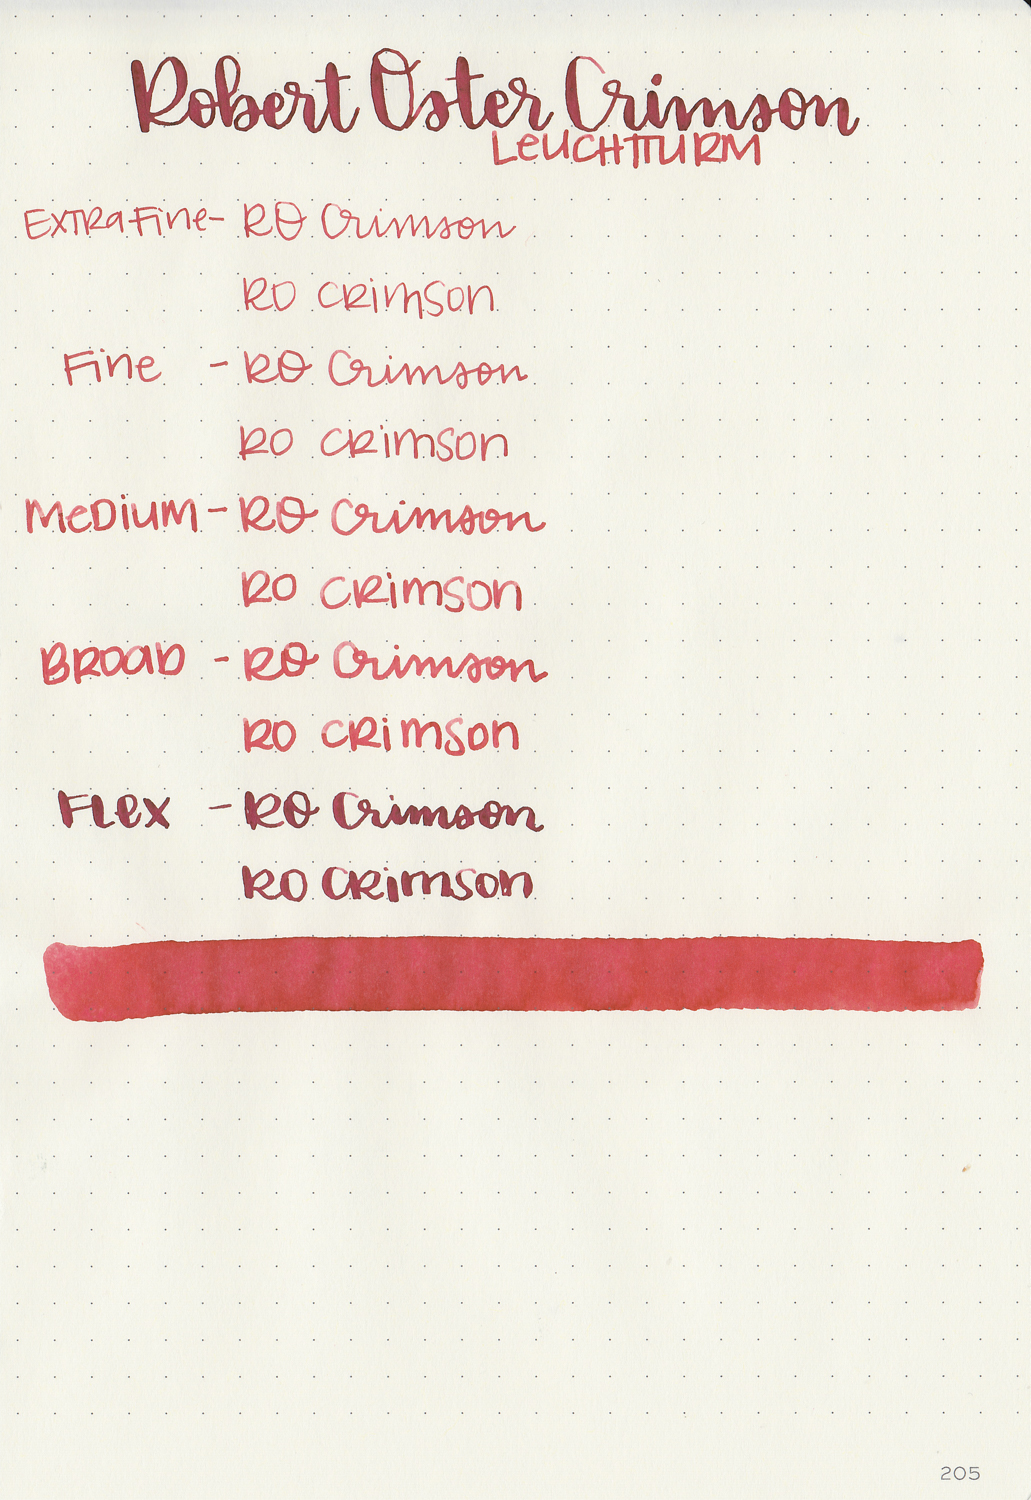 Robert Oster Crimson
LEUCHTTURM
EXTRA FINE- RO Crimson
RO CRimSON
Fine - RO Crimson
RO CRimSON
MeDiUM - RO Crimson
RO CRimSON
BROAD - RO Crimson
RO CRimSON
FLex - RO Crimson
RO CRimSON
205